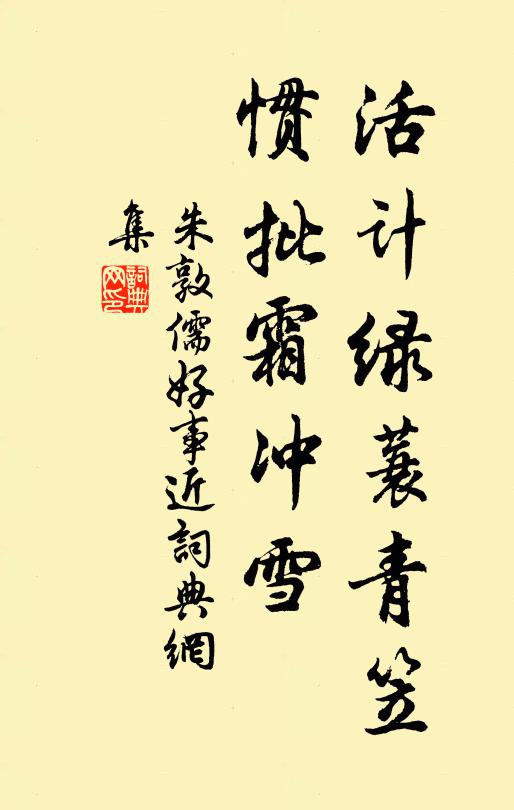 活计绿蓑青笠
惯批霜冲雪
朱敦儒好事近詞典網
集
詞典
网印